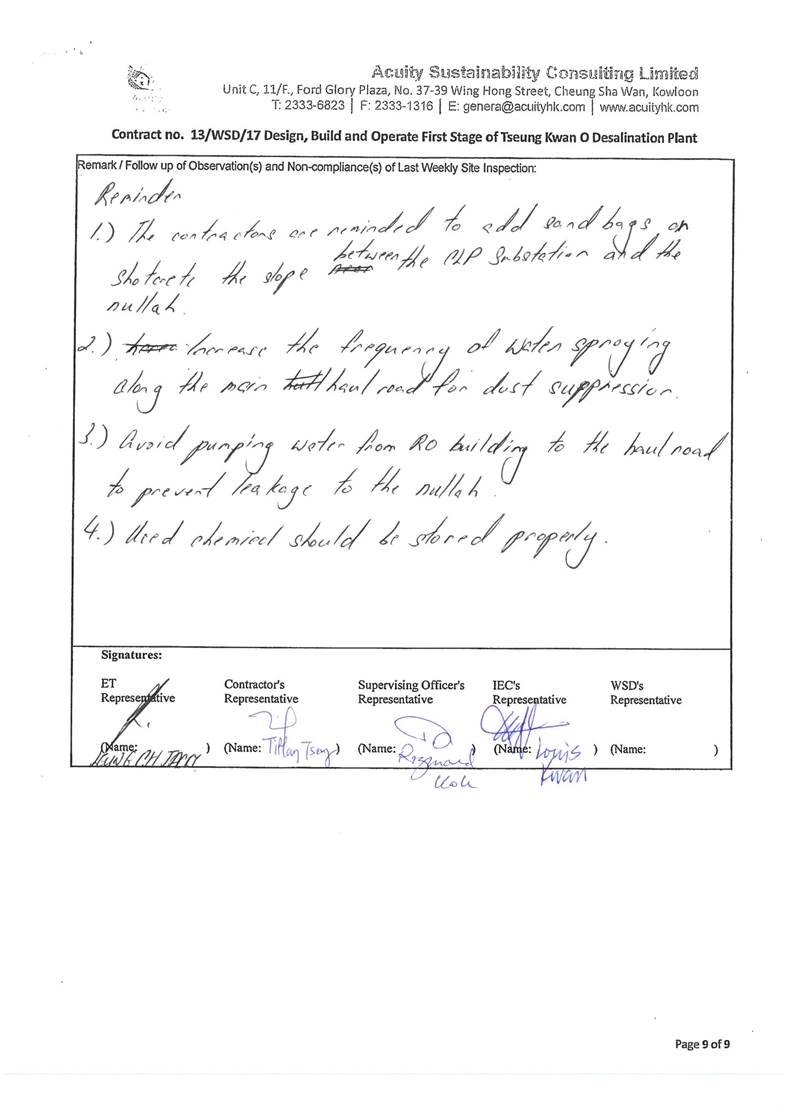 Acuity Sustainability Consulting Limited
Unit C, 11/F., Ford Glory Plaza, No. 37-39 Wing Hong Street, Cheung Sha Wan, Kowloon
T: 2333-6823 | F: 2333-1316 | E: genera@acuityhk.com | www.acuityhk.com
Contract no. 13/WSD/17 Design, Build and Operate First Stage of Tseung Kwan O Desalination Plant
Remark / Follow up of Observation(s) and Non-compliance(s) of Last Weekly Site Inspection:
Reminder
1.) The contractors are reminded to add sand bags or
shotcrete the slope between the CLP Substation and the
nullah.
2.) Increase the frequency of water spraying
along the main haul road for dust suppression.
3.) Avoid pumping water from RO building to the haul road
to prevent leakage to the nullah.
4.) Used chemical should be stored properly.
Signatures:
ET Contractor's Supervising Officer's IEC's WSD's
Representative Representative Representative Representative Representative
(Name: ) (Name: Tiffany Tsang) (Name: ) (Name: Louis ) (Name: )
Kwan
Page 9 of 9